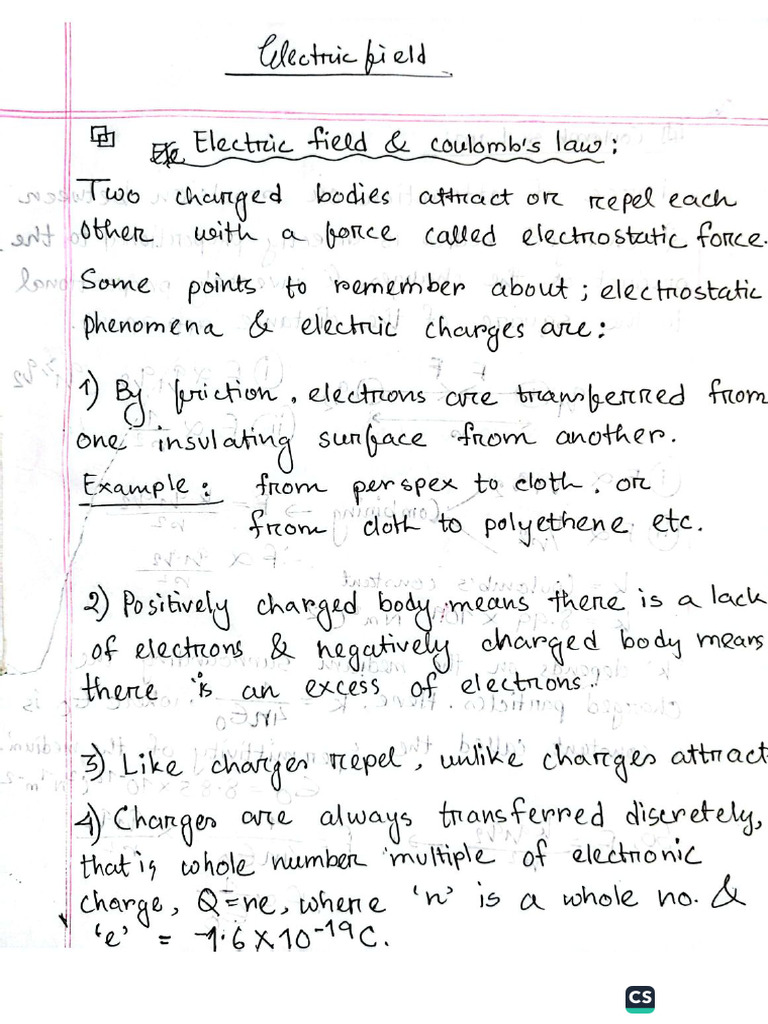 Electric field
Electric field & coulomb's law:
Two charged bodies attract or repel each
other with a force called electrostatic force.
Some points to remember about; electrostatic
phenomena & electric charges are:
1) By friction, electrons are transferred from
one insulating surface from another.
Example: from perspex to cloth. or
from cloth to polyethene etc.
2) Positively charged body means there is a lack
of electrons & negatively charged body means
there is an excess of electrons.
3) Like charges repel, unlike charges attract
4) Charges are always transferred discretely,
that is whole number multiple of electronic
charge, Q=ne, where 'n' is a whole no. &
'e' = -1.6X10-19C.
CS